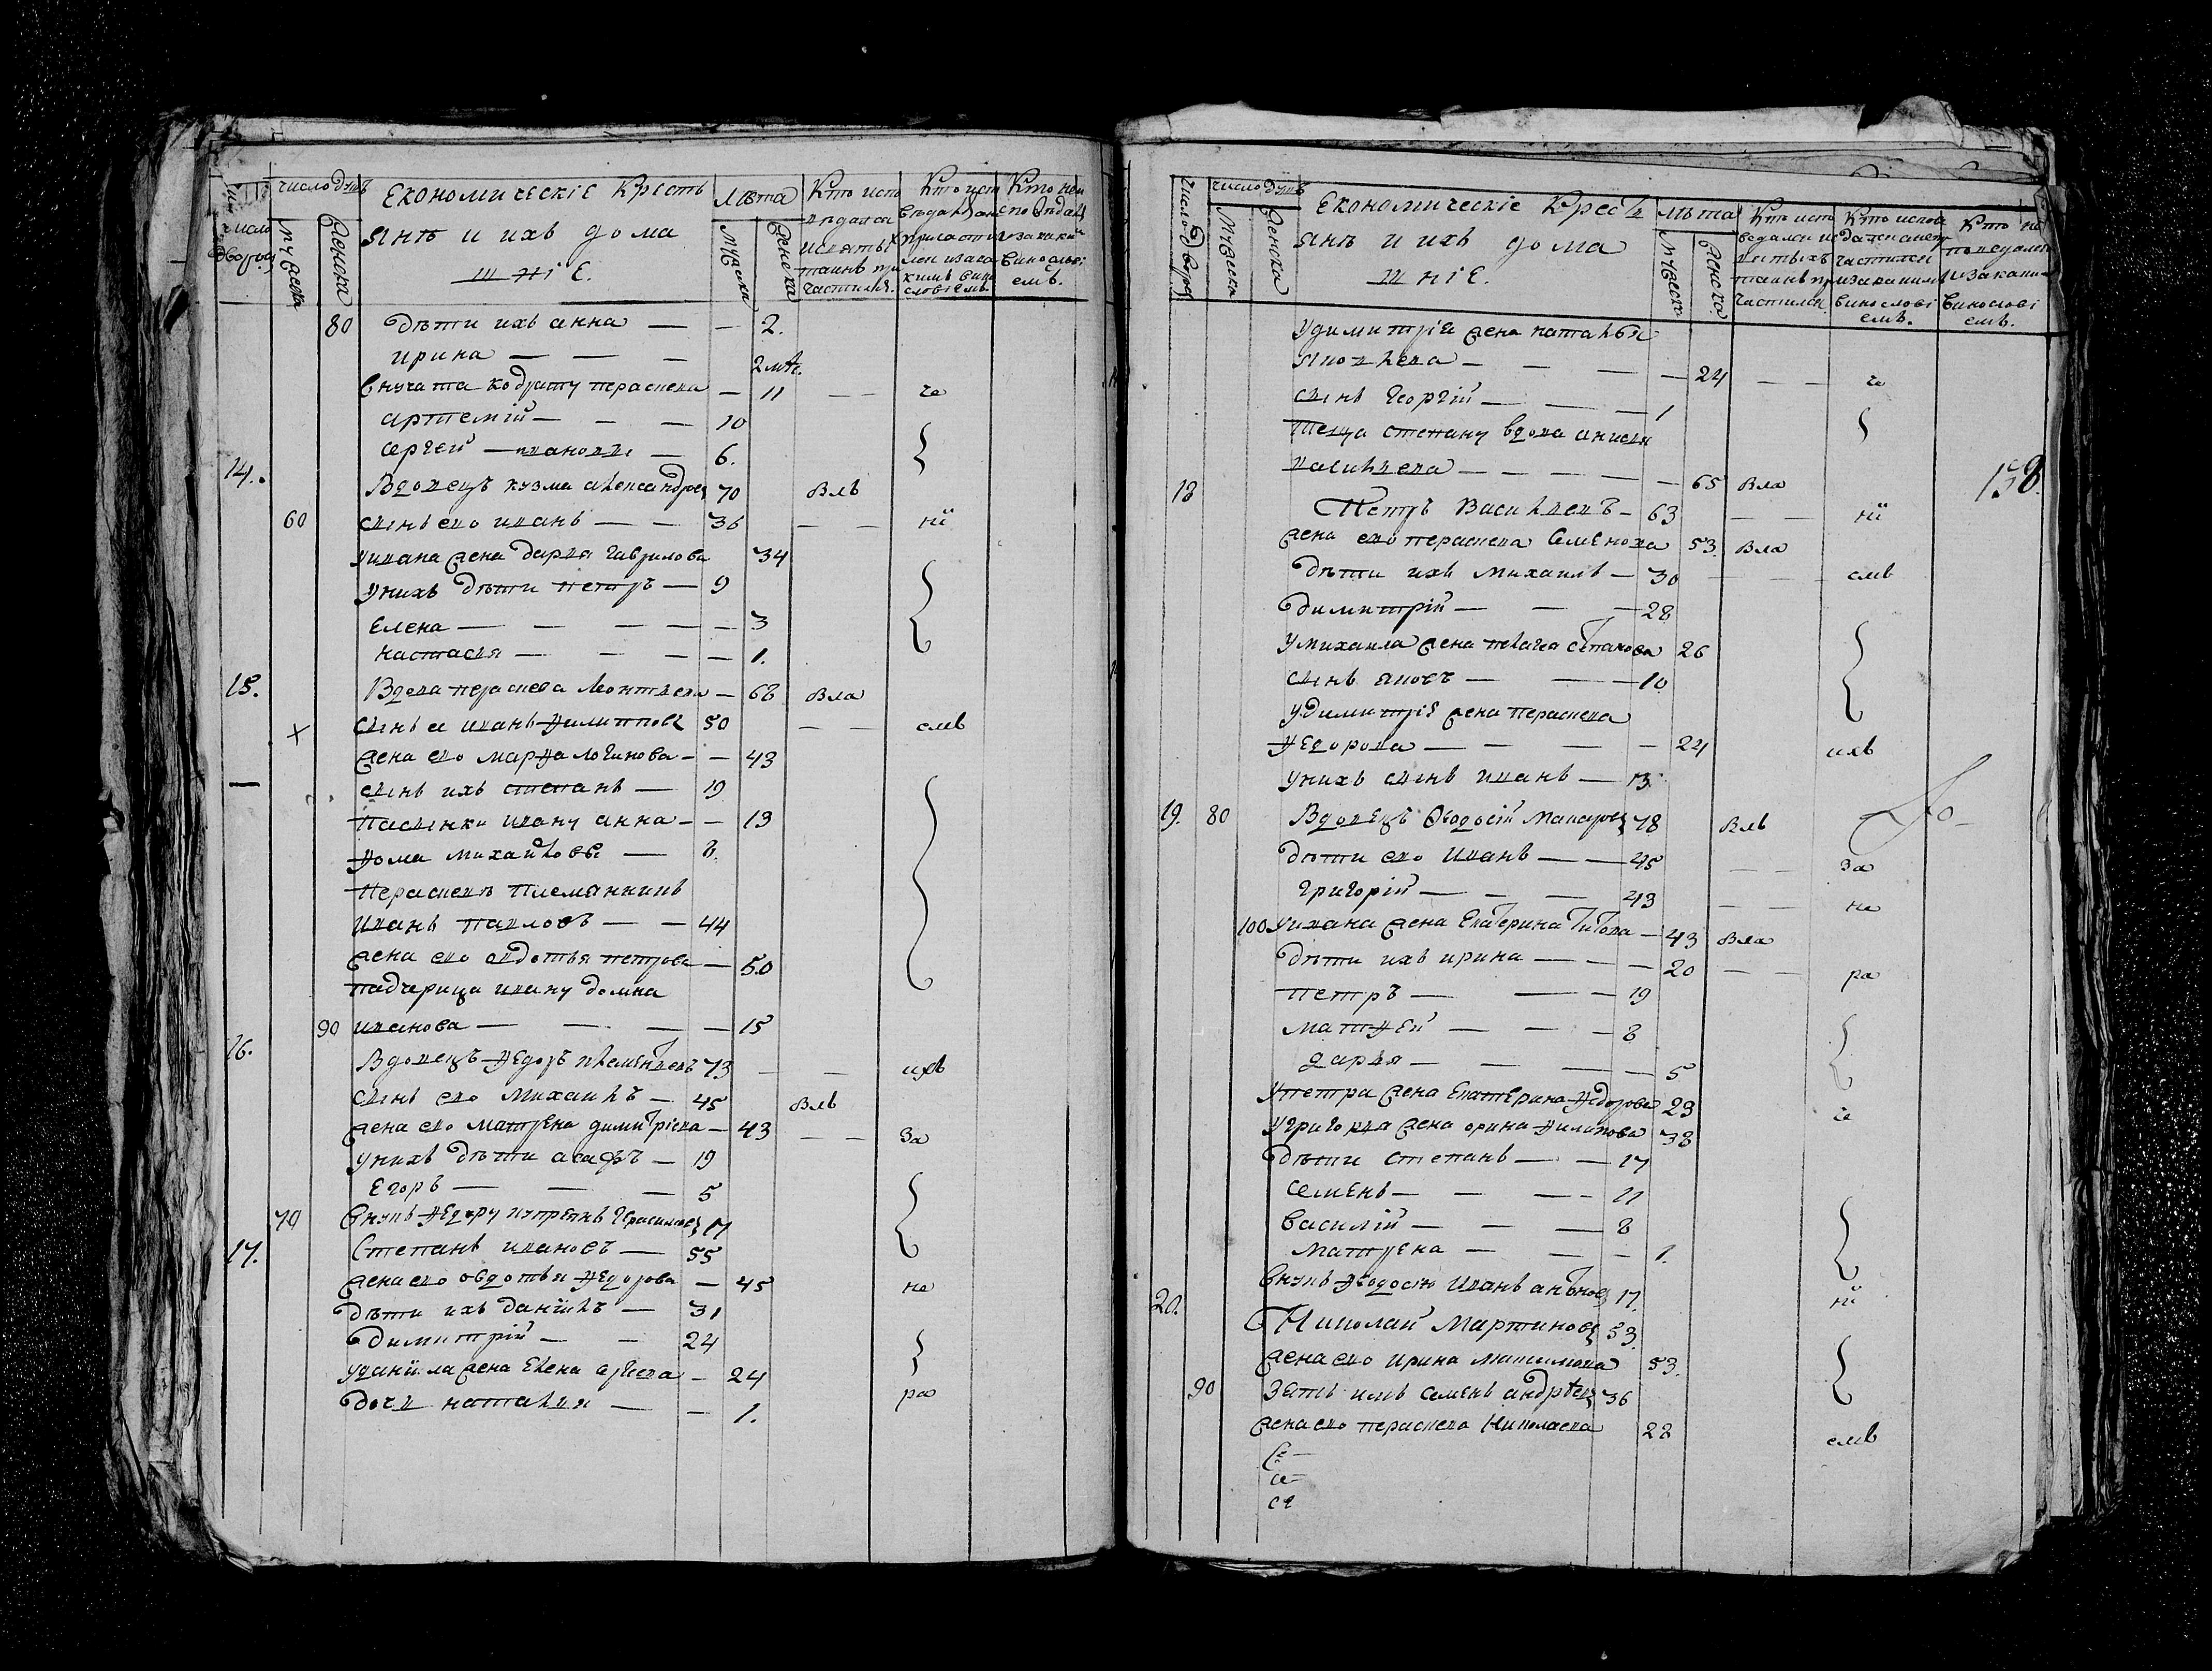 число дворов
число душъ
мужеска
женска
Економическіе Кресть
янѣ и ихъ дома
шніе.
Лѣта
мужеска
женска
Кто испо
ведался
и святыхъ
таинъ при
частился.
80 дѣти ихъ анна — — 2.
ирина — — — 2 мѣс.
внучата кодрату параскева — 11 — — че
артемій — — — 10
сергей — 6.
14. Вдовецъ кузма александров 70 влъ
60 сынъ ево иванъ — — 36 — — нїї
у ивана жена дарья гаврилова 34
у нихъ дѣти петръ — 9
елена — — — — — 3
настасья — — — — 1.
15. Вдова параскева леонтьева — 68 вла
сынъ ея иванъ филиппов 50 — — емъ
жена ево марфа логинова — — 43
сынъ ихъ степанъ — 19
пасынки ивану анна — — 13
фома михайловъ — 8.
параскевѣ племянникъ
иванъ павловъ — — 44
жена ево авдотья петрова — 50
падчерица ивану домна
90 иванова — — — — 15
16. Вдовецъ федоръ клементьевъ 73 — — ихъ
сынъ ево михаилъ — 45 влъ
жена ево матрена димитріева — 43 — — за
у нихъ дѣти асафъ — 19
егоръ — — — 5
70 внукъ федору купреянъ герасимов 17
17. Степанъ ивановъ — 55
жена ево овдотья федорова — 45 не
дѣти ихъ данїилъ — 31
димитрій — — 24
у данїила жена елена — 24
дочь наталья — — 1. ра
число дворов
число душъ
мужеска
женска
Економическіе Крес
янѣ и ихъ дома
шніе.
лѣта
мужеска
женска
у димитрія жена наталья
яковлева — — — — 24 — — че
сынъ георгій — — — 1
теща степану вдова анисья
васильева — — — — — 65 вла
158.
18 Петръ Васильевъ — 63 — — нїї
жена ево параскева семенова 53. вла
дѣти ихъ михаилъ — 30 — — емъ
димитрій — — — 28
у михаила жена пелагея степанова 26
сынъ яковъ — — — 10
у димитрія жена параскева
федорова — — — — 24 ихъ
у нихъ сынъ иванъ — 3
19. 80 Вдовецъ Феодосій Макаров 78 влъ
дѣти ево иванъ — — 45 — — за
григорій — — — 43 — — не
100 у ивана жена екатерина титова — 43 вла
дѣти ихъ ирина — — — 20 — — ра
петръ — — — 19
матфей — — — 8
дарья — — — — 5
у петра жена екатерина федорова 23 че
у григорья жена орина филипова 38
дѣти степанъ — — 17
семенъ — — — 11
василій — — — 8
матрена — — — 1.
внукъ феодосію иванъ антонов 17. нїї
20. Николай Мартинов 53.
жена ево ирина максимова 53.
90 зять имъ семенъ андреев 36
жена ево параскева николаева 28 емъ